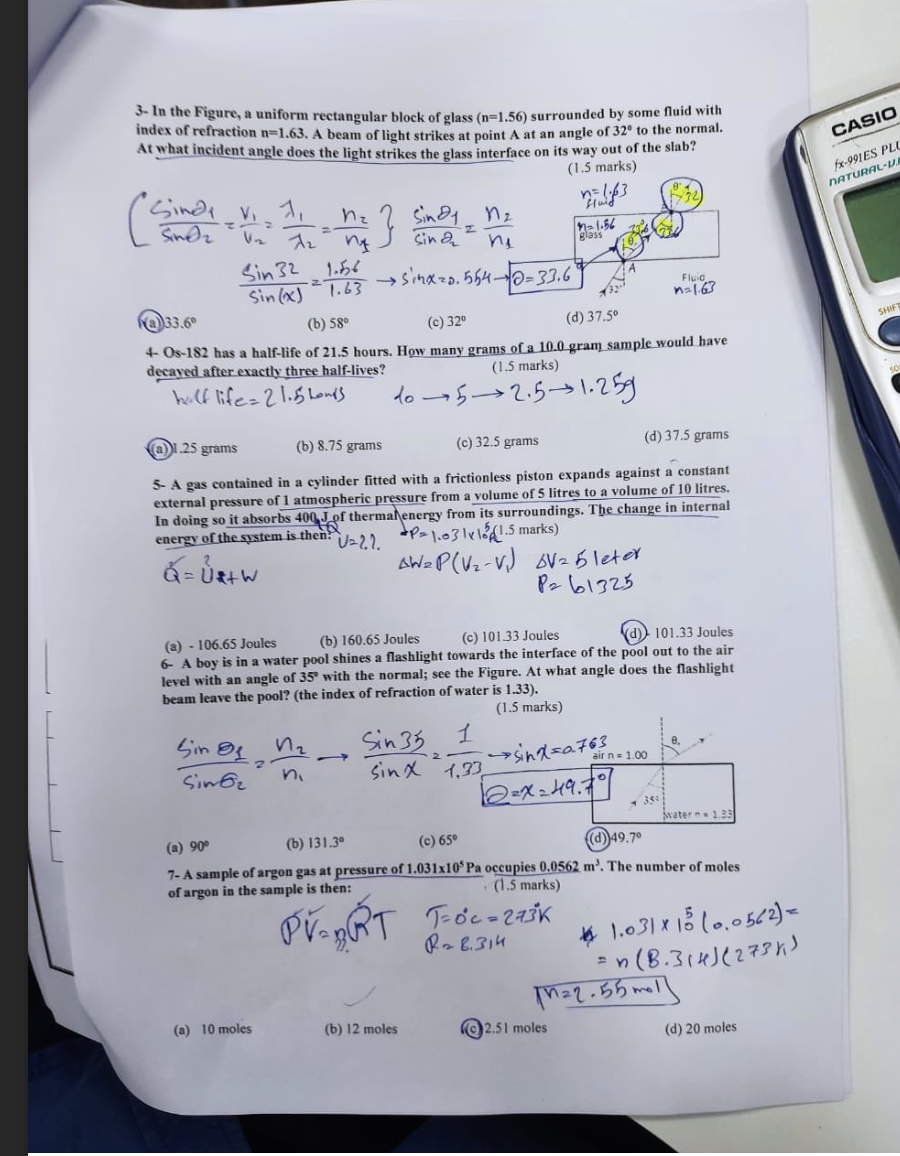 3- In the Figure, a uniform rectangular block of glass (n=1.56) surrounded by some fluid with
index of refraction n=1.63. A beam of light strikes at point A at an angle of 32° to the normal.
At what incident angle does the light strikes the glass interface on its way out of the slab?
(1.5 marks)
( Sinθ1/Sinθ2 = V1/V2 = λ1/λ2 = n2/n1 } Sinθ1/Sinθ2 = n2/n1
n=1.63
fluid
θ' 32
n=1.56
glass
33.6
33.6
θ'
A
32°
Fluid
n=1.63
Sin 32/Sin(x) = 1.56/1.63 → Sinx=0.554 → θ=33.6°
(a) 33.6° (b) 58° (c) 32° (d) 37.5°
4- Os-182 has a half-life of 21.5 hours. How many grams of a 10.0 gram sample would have
decayed after exactly three half-lives? (1.5 marks)
half life=21.5 hours 10 → 5 → 2.5 → 1.25g
(a) 1.25 grams (b) 8.75 grams (c) 32.5 grams (d) 37.5 grams
5- A gas contained in a cylinder fitted with a frictionless piston expands against a constant
external pressure of 1 atmospheric pressure from a volume of 5 litres to a volume of 10 litres.
In doing so it absorbs 400 J of thermal energy from its surroundings. The change in internal
energy of the system is then: (1.5 marks)
Q
U=?? P=1.031x10⁵Pa
Q = U + W ΔW=P(V2-V1) ΔV=5 leter
?
P= 101325
(a) - 106.65 Joules (b) 160.65 Joules (c) 101.33 Joules (d) - 101.33 Joules
6- A boy is in a water pool shines a flashlight towards the interface of the pool out to the air
level with an angle of 35° with the normal; see the Figure. At what angle does the flashlight
beam leave the pool? (the index of refraction of water is 1.33).
(1.5 marks)
Sin θ1/Sin θ2 = n2/n1 → Sin 35/sin x = 1/1.33 → sin x=0.763
θ=x=49.7°
θ,
air n = 1.00
35°
water n = 1.33
(a) 90° (b) 131.3° (c) 65° (d) 49.7°
7- A sample of argon gas at pressure of 1.031x10⁵ Pa occupies 0.0562 m³. The number of moles
of argon in the sample is then: (1.5 marks)
PV=nRT T=0°C=273°K
R=8.314
1.031x10⁵(0.0562)=
=n(8.314)(273K)
n=2.55 mol
(a) 10 moles (b) 12 moles (c) 2.51 moles (d) 20 moles
CASIO
fx-991ES PLU
NATURAL-V.P
SHIFT